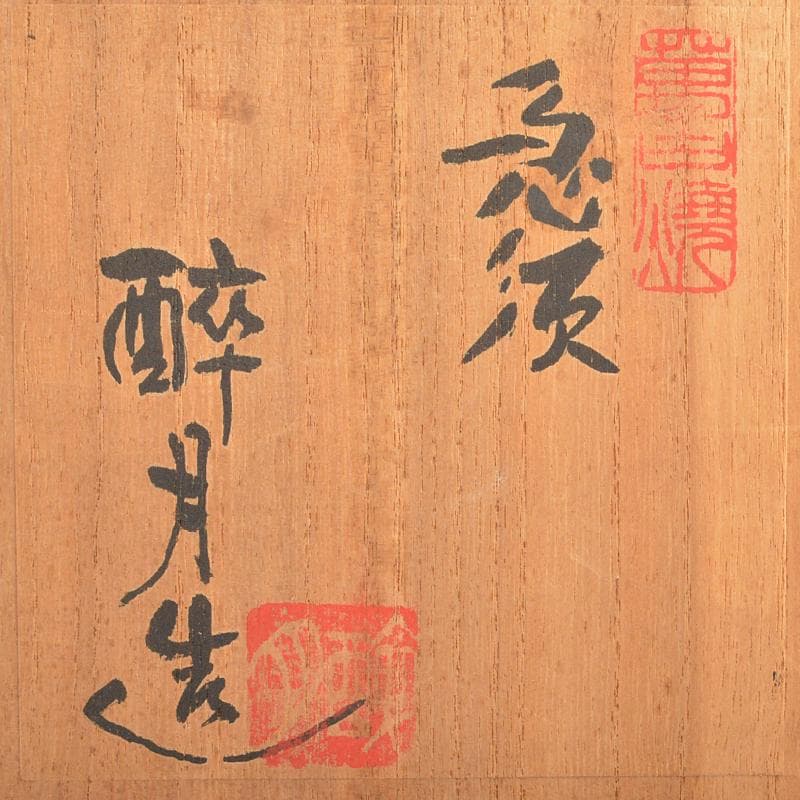 萬古焼
急須
醉月造